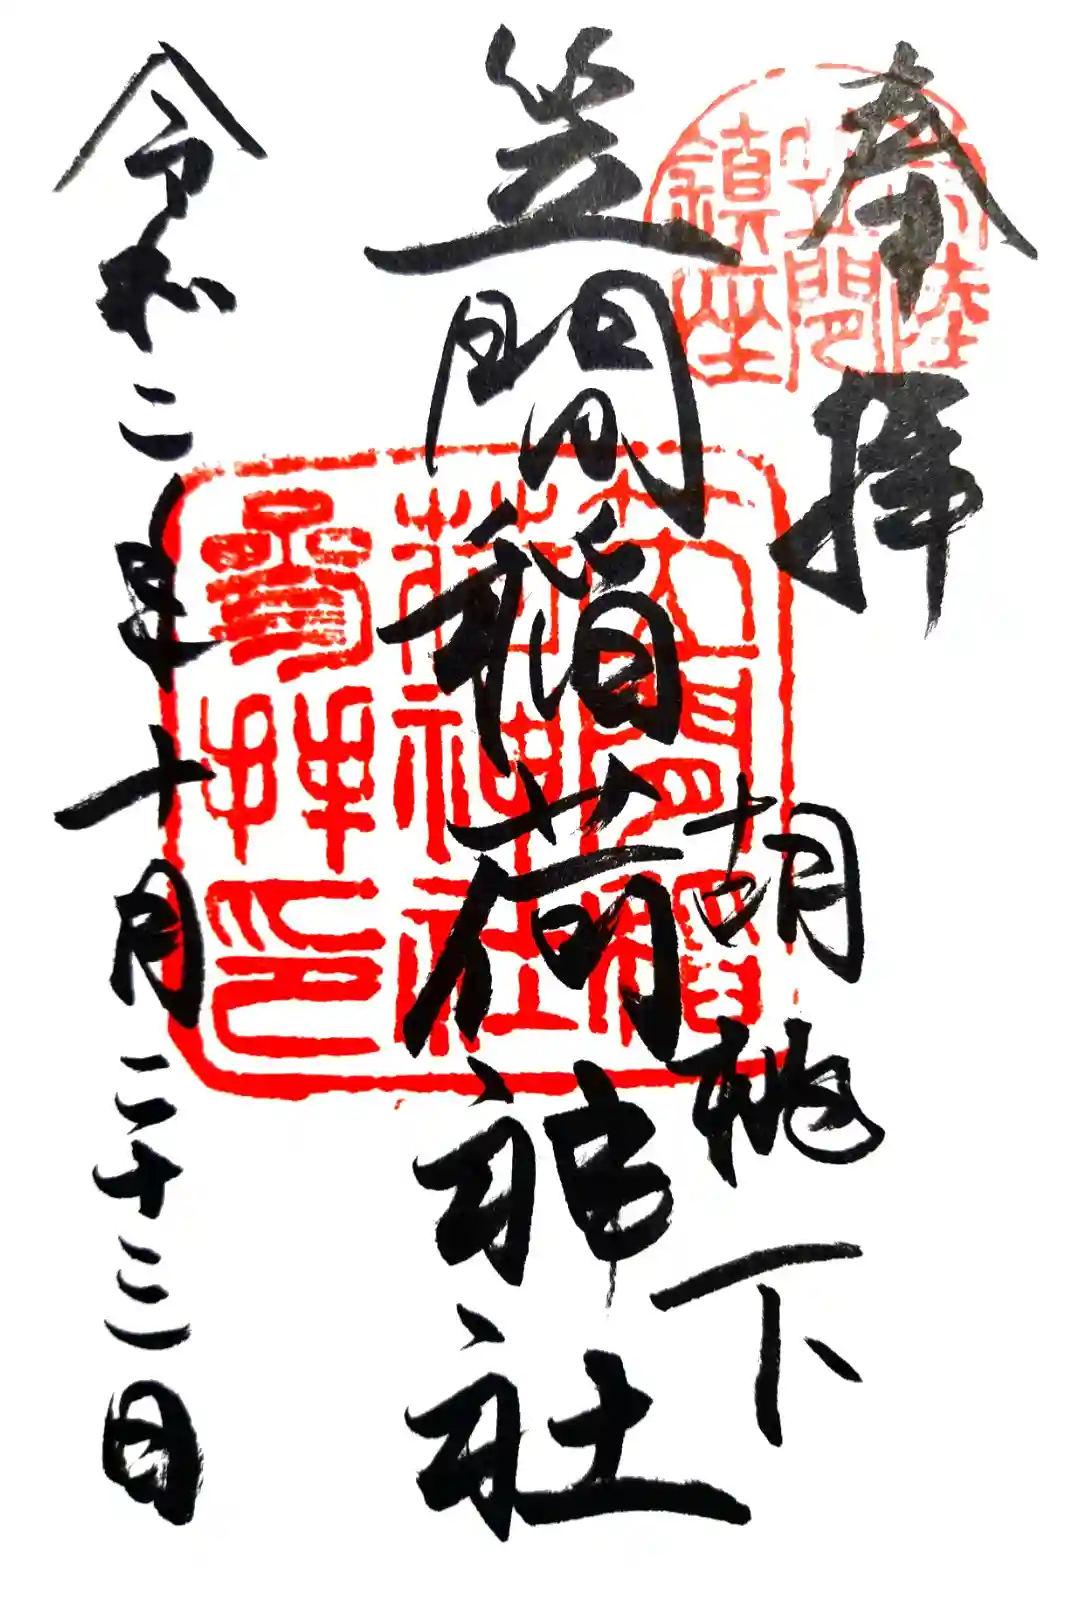 奉拝
胡桃下
笠間稲荷神社
令和二年十月二十三日
常陸
笠間
鎮座
笠間稲
荷神社
参拝印